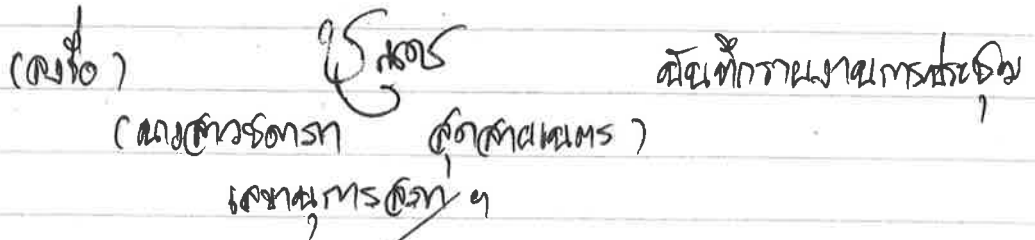 (ลงชื่อ) บันทึกรายงานการประชุม
(นางสาวธิดารา สุดสายเนตร)
เลขานุการสภาฯ